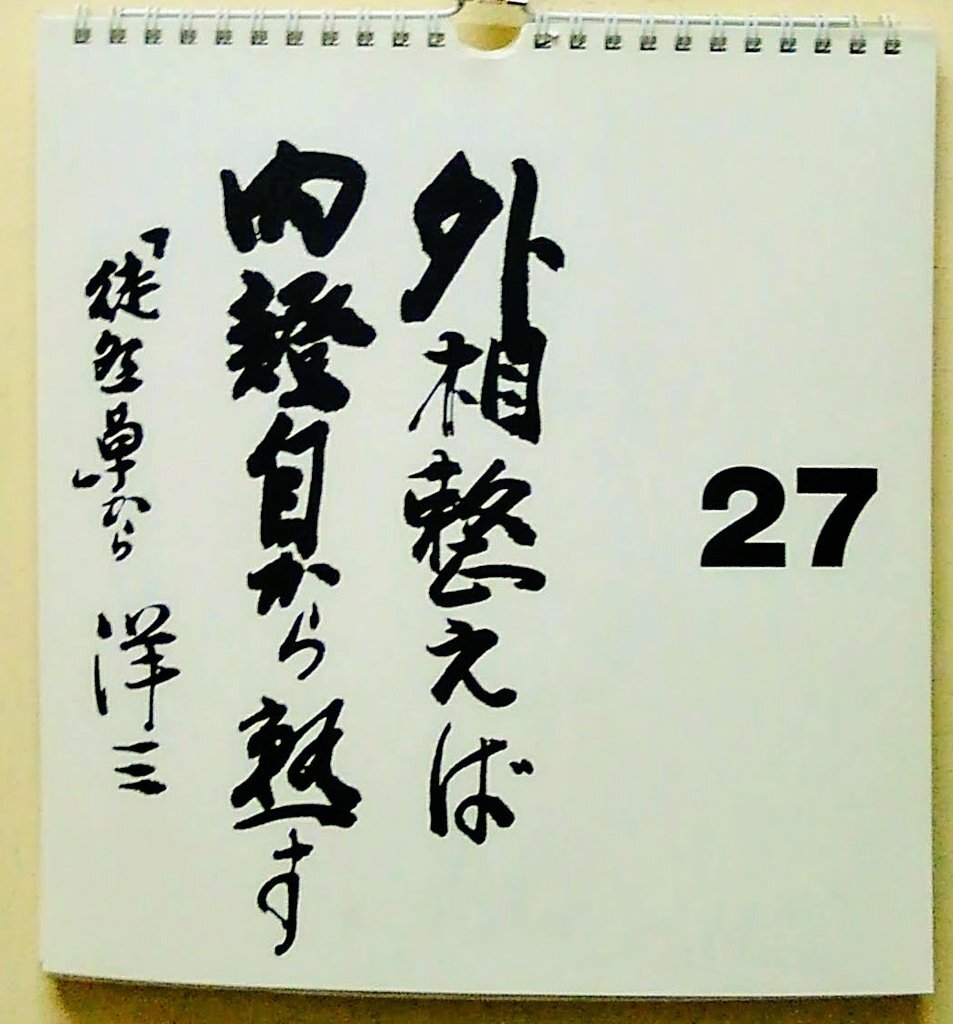 27
外相整えば
内證自から熟す
「徒然草」から 洋三